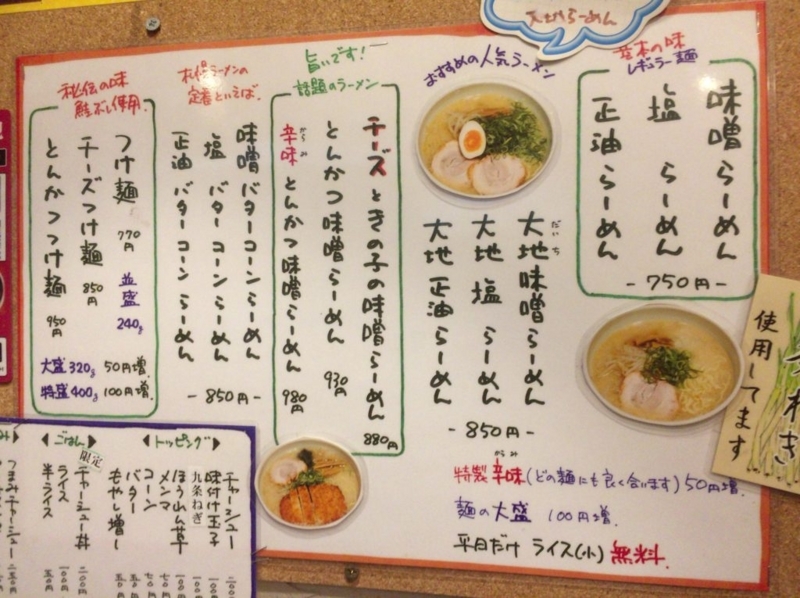 大地らーめん
基本の味
レギュラー麺
味噌らーめん
塩らーめん
正油らーめん
-750円-
おすすめの人気ラーメン
大地味噌らーめん
だいち
大地塩らーめん
大地正油らーめん
-850円-
旨いです!
話題のラーメン
チーズときの子の味噌らーめん
880円
とんかつ味噌らーめん
930円
辛味とんかつ味噌らーめん
からみ
980円
札幌ラーメンの
定番といえば、
味噌バターコーンらーめん
塩バターコーンらーめん
正油バターコーンらーめん
-850円-
秘伝の味
鮭ぶし使用
つけ麺 770円
並盛 240g
チーズつけ麺 850円
とんかつつけ麺 950円
大盛320g 50円増
特盛400g 100円増
特製辛味(どの麺にも良く合います)50円増.
からみ
麺の大盛 100円増.
平日だけ ライス(小) 無料
使用してます
トッピング
チャーシュー
味付け玉子
九条ねぎ
ほうれん草
メンマ
コーン
バター
もやし増し
ごはん
限定
チャーシュー丼
ライス
半ライス
つまみチャーシュー